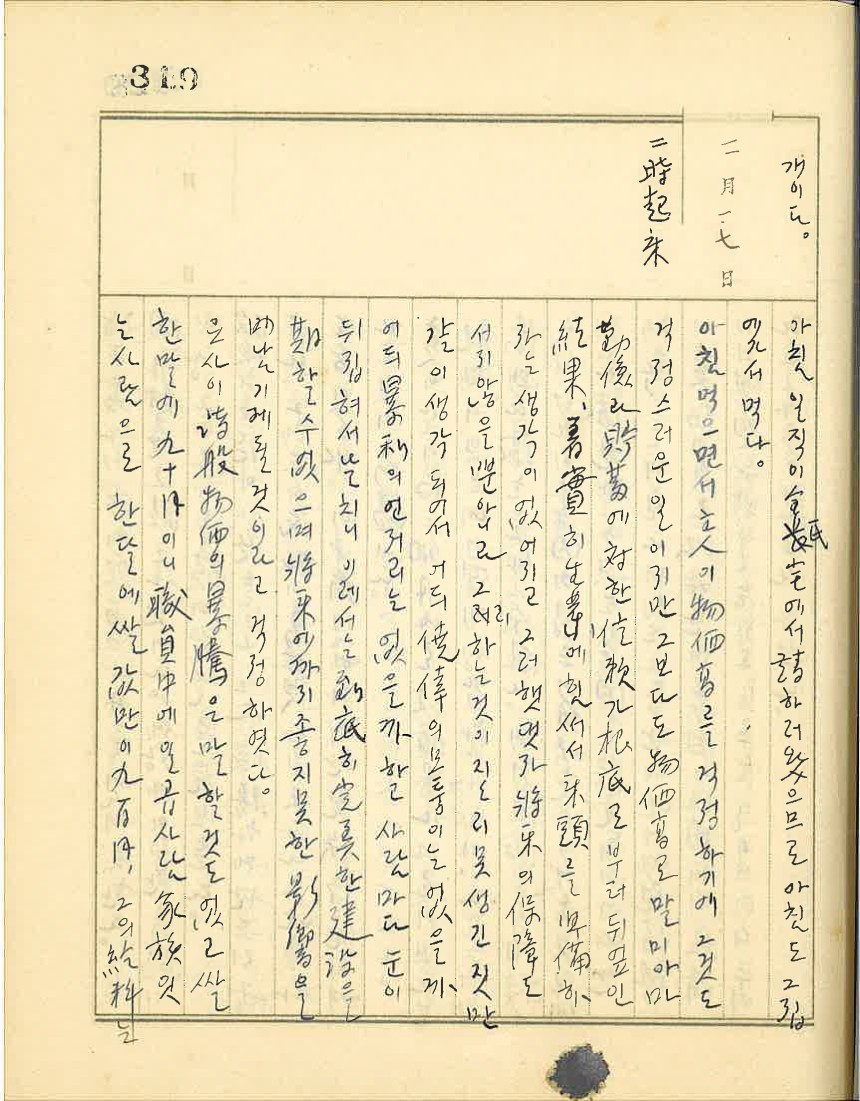 319
개이다。
二月一七日
二時起床
아침 일직이 金長氏宅에서 請하러 왔으므로 아침도 그 집
에서 먹다。
아침 먹으면서 主人이 物価高를 걱정하기에 그것도
걱정스러운 일이지만 그보다도 物価高로 말미아마
勤儉과 貯蓄에 対한 信頼가 根底로부터 뒤엎인
結果、着實히 生業에 힘써서 末頭를 準備하
라는 생각이 없어지고 그러햇댓자 將来의 保障도
서지않을 뿐 아니라 그러하는 것이 지도리 못생긴 짓만
같이 생각되어서 어듸 僥倖의 모퉁이는 없을까、
어듸 暴利의 언저리는 없을까 하고 사람마다 눈이
뒤집혀서 날치니 이레서는 到底히 完具한 建設을
期할 수 없으며 將来에까지 좋지못한 影響을
매나기게 될것이라고 걱정하엿다。
은사이 諸般物価의 暴騰은 말할것도 없고 쌀
한말에 九十円이니 職員中에 일곱사람 家族잇
는 사람으로 한달에 쌀값만이 九百円、그의 給料는